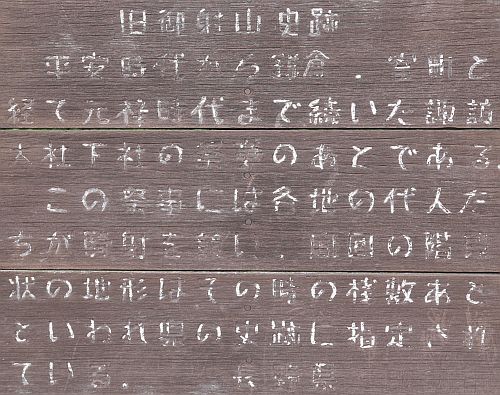 旧御射山史跡
平安時代から鎌倉．室町と
経て元禄時代まで続いた諏訪
大社下社の祭事のあとである．
この祭事には各地の代人た
ちが 射を競い．周囲の階段
状の地形はその時の桟敷あと
といわれ県の史跡に指定され
ている． 長野県